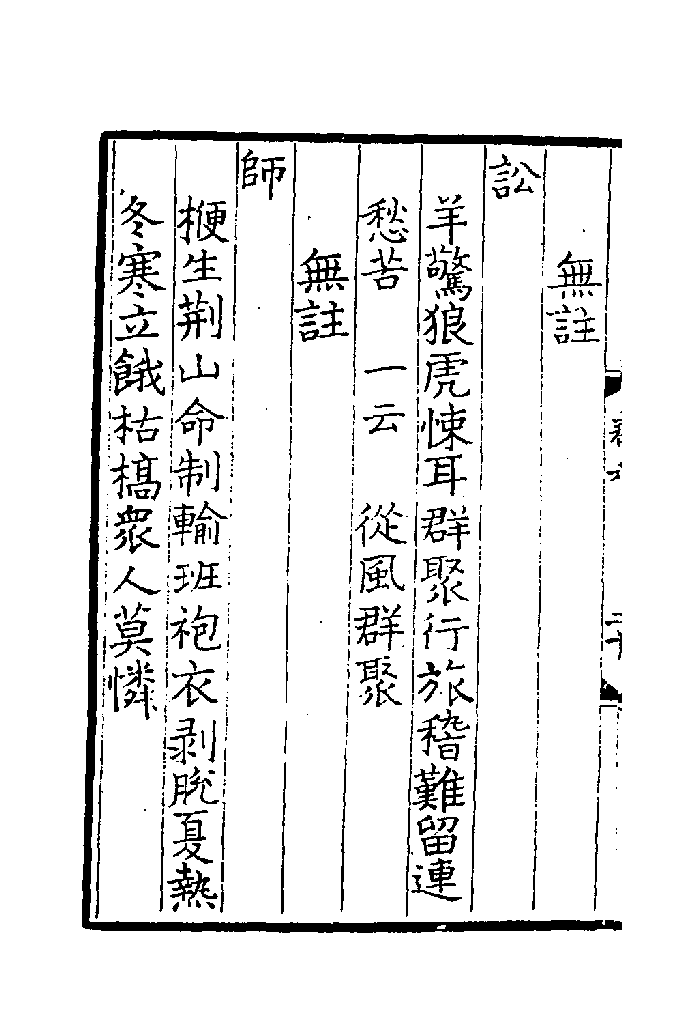 無註
訟
羊驚狼虎悚耳群聚行旅稽難留連
愁苦　一云　從風群聚
無註
師
挭生荆山命制輸班袍衣剥脫夏熱
冬寒立餓枯槁衆人莫憐